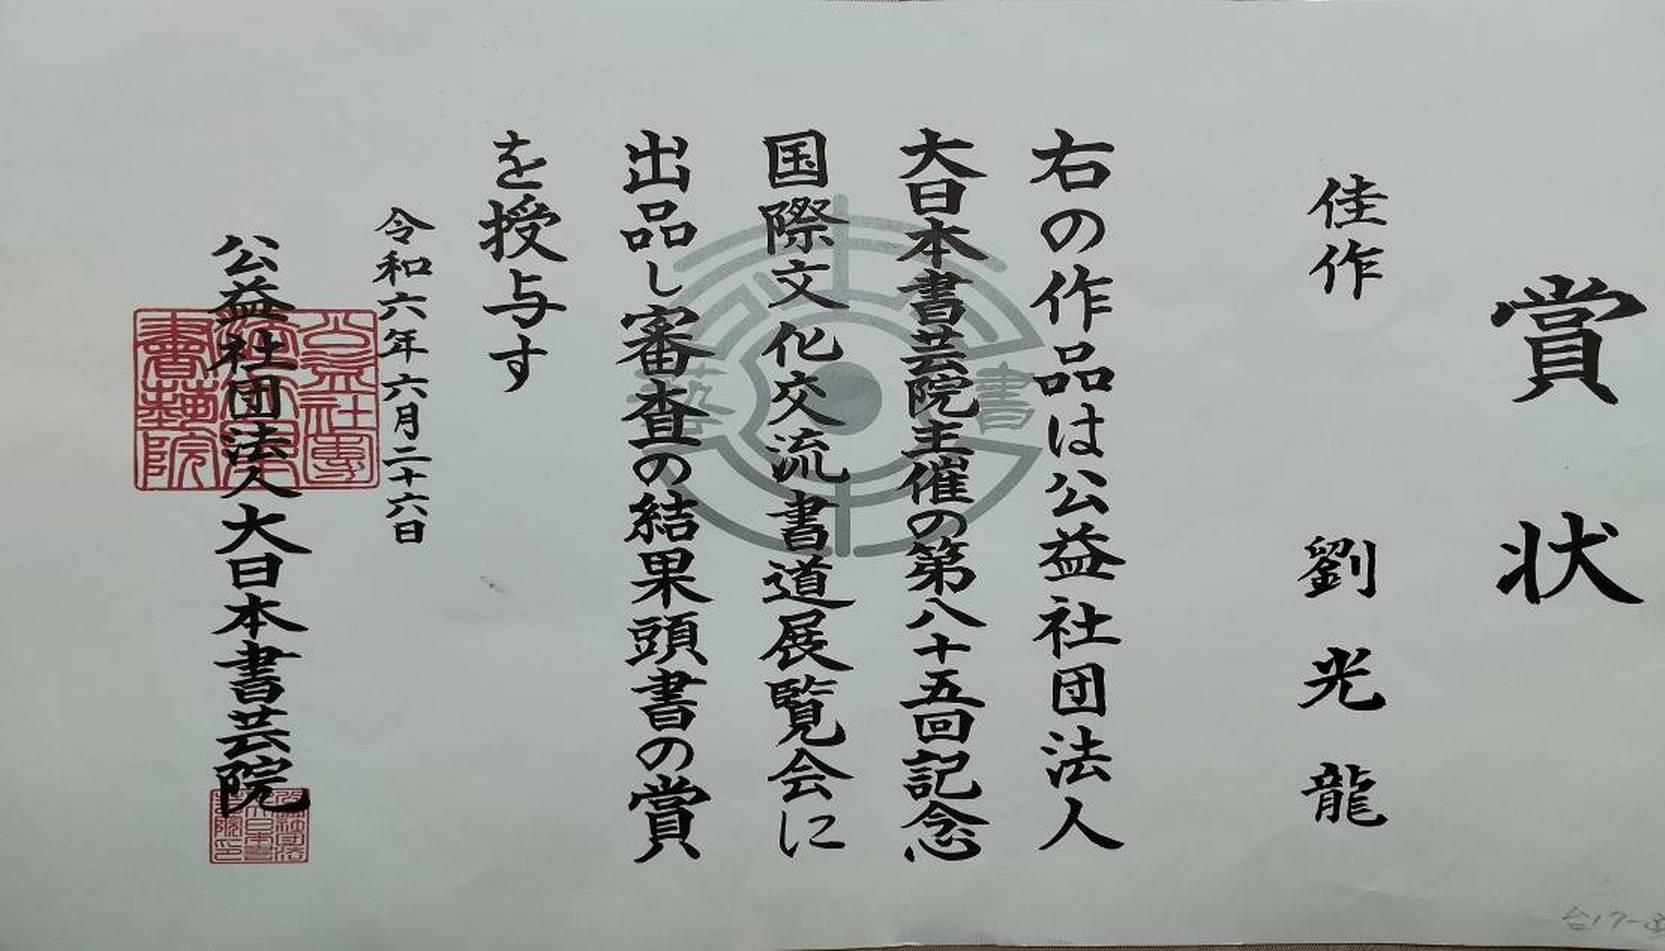 賞状
佳作　劉光龍
右の作品は公益社団法人
大日本書芸院主催の第八十五回記念
国際文化交流書道展覧会に
出品し審査の結果頭書の賞
を授与す
令和六年六月二十六日
公益社団法人大日本書芸院
書
藝